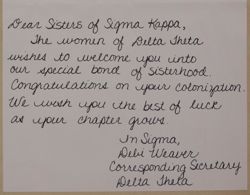 Dear Sisters of Sigma Kappa,
The women of Delta Theta
wishes to welcome you into
our special bond of sisterhood.
Congratulations on your colonization.
We wish you the best of luck
as your chapter grows.
In Sigma,
Debi Weaver
Corresponding Secretary
Delta Theta